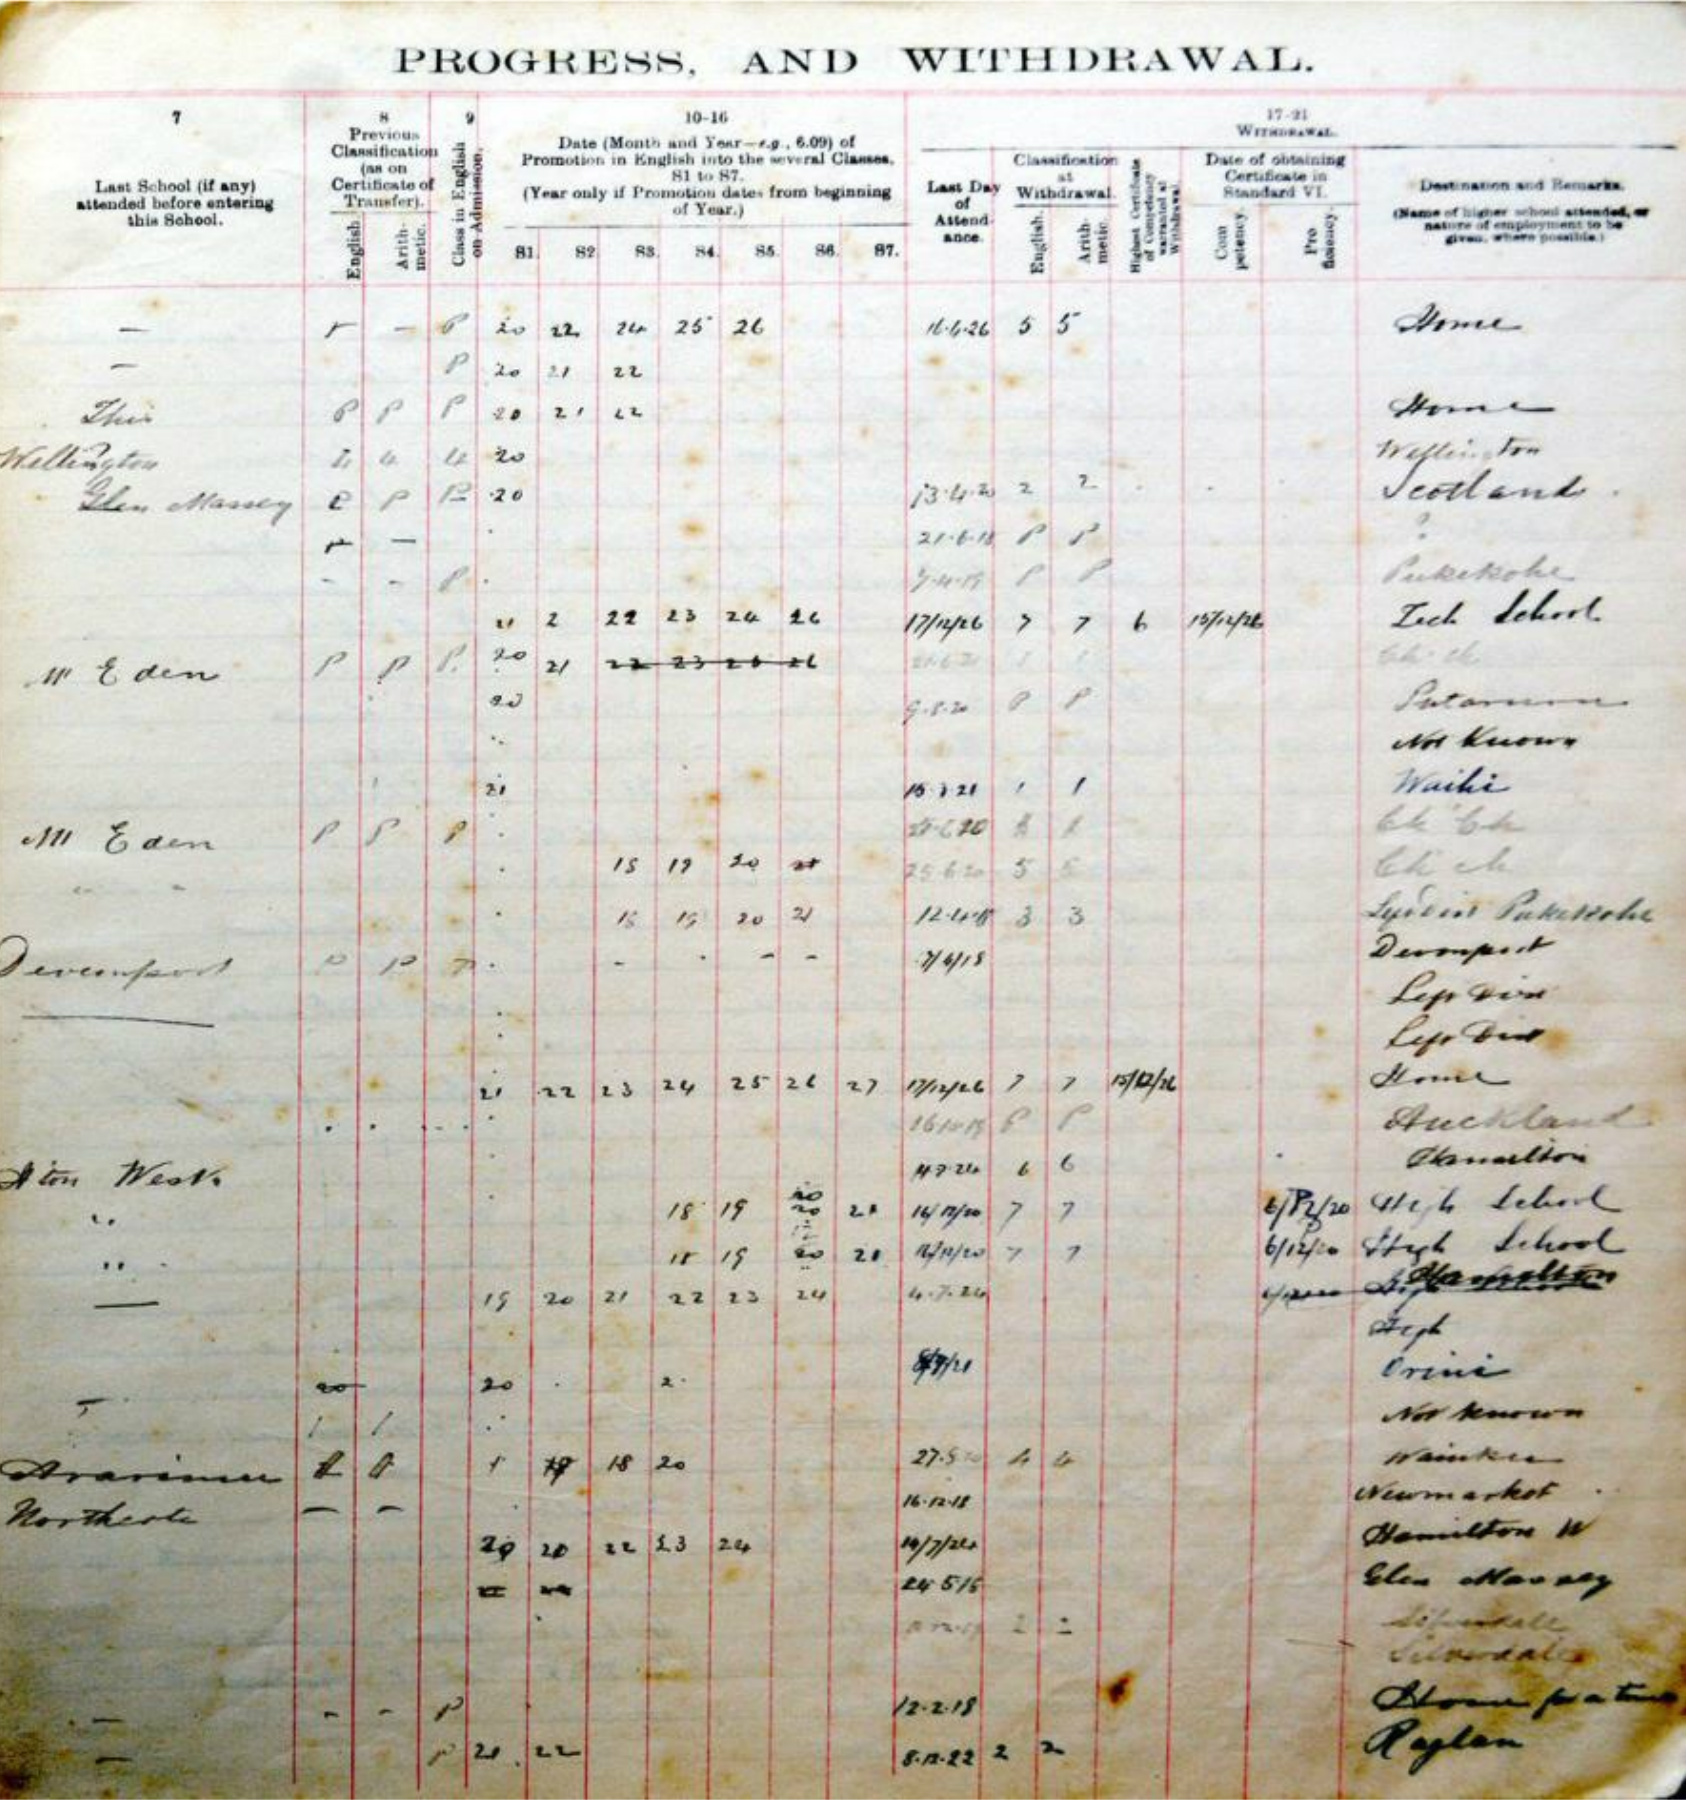 PROGRESS, AND WITHDRAWAL.
7 8 9 10-16 17-21
Last School (if any) attended before entering this School.
Previous Classification (as on Certificate of Transfer).
English. Arith-metic.
Class in English on Admission.
Date (Month and Year—e.g., 6.09) of Promotion in English into the several Classes, S1 to S7.
(Year only if Promotion dates from beginning of Year.)
S1. S2 S3. S4. S5. S6. S7.
WITHDRAWAL.
Last Day of Attend-ance.
Classification at Withdrawal.
English. Arith-metic.
Highest Certificate of Competency warranted at Withdrawal.
Date of obtaining Certificate in Standard VI.
Com petency. Pro ficiency.
Destination and Remarks.
(Name of higher school attended, or nature of employment to be given, where possible.)
— – 20 22 24 25 26 5 5 Home
— P 20 21 22
This P P P 20 21 22 Home
Wellington 4 4 20 Wellington
Glen Massey P 20 13.4.20 2 2 Scotland
— 21.6.18 P P ?
- - P P P Pukekohe
2 22 23 24 26 17/12/26 7 7 6 15/12/26 Tech School
Mt Eden P P P. 20 21 22 23 26 Ch ch
20 9.8.20 P P
Not Known
21 15.3.21 1 1 Waihi
Mt Eden P P P Ch Ch
" " 18 19 20 21 25.6.20 5 5 Ch ch
19 20 21 3 3 Pukekohe
Devonport P P - - - 7/6/18 Devonport
— Left Dist
Left Dist
21 22 23 24 25 26 27 17/12/26 7 7 15/12/26 Home
P P Auckland
H'ton West. 4.7.24 6 6 Hamilton
" 18 19 20 20 21 16/12/20 7 7 High School
" 18 19 20 21 16/12/20 7 7 6/12/20 High School
— 19 20 21 22 23 24 4.7.24 Hamilton
High
20 20 Orini
1 1 Not known
18 20 4 4
Northcote — — 16.12.18 Newmarket
20 20 22 23 24 14/7/24 Hamilton W
24.5.18 Glen Massey
2 Silverdale
Silverdale
— - - P 12.2.18 Home for a time
— P 21 22 8.12.22 2 2 Raglan